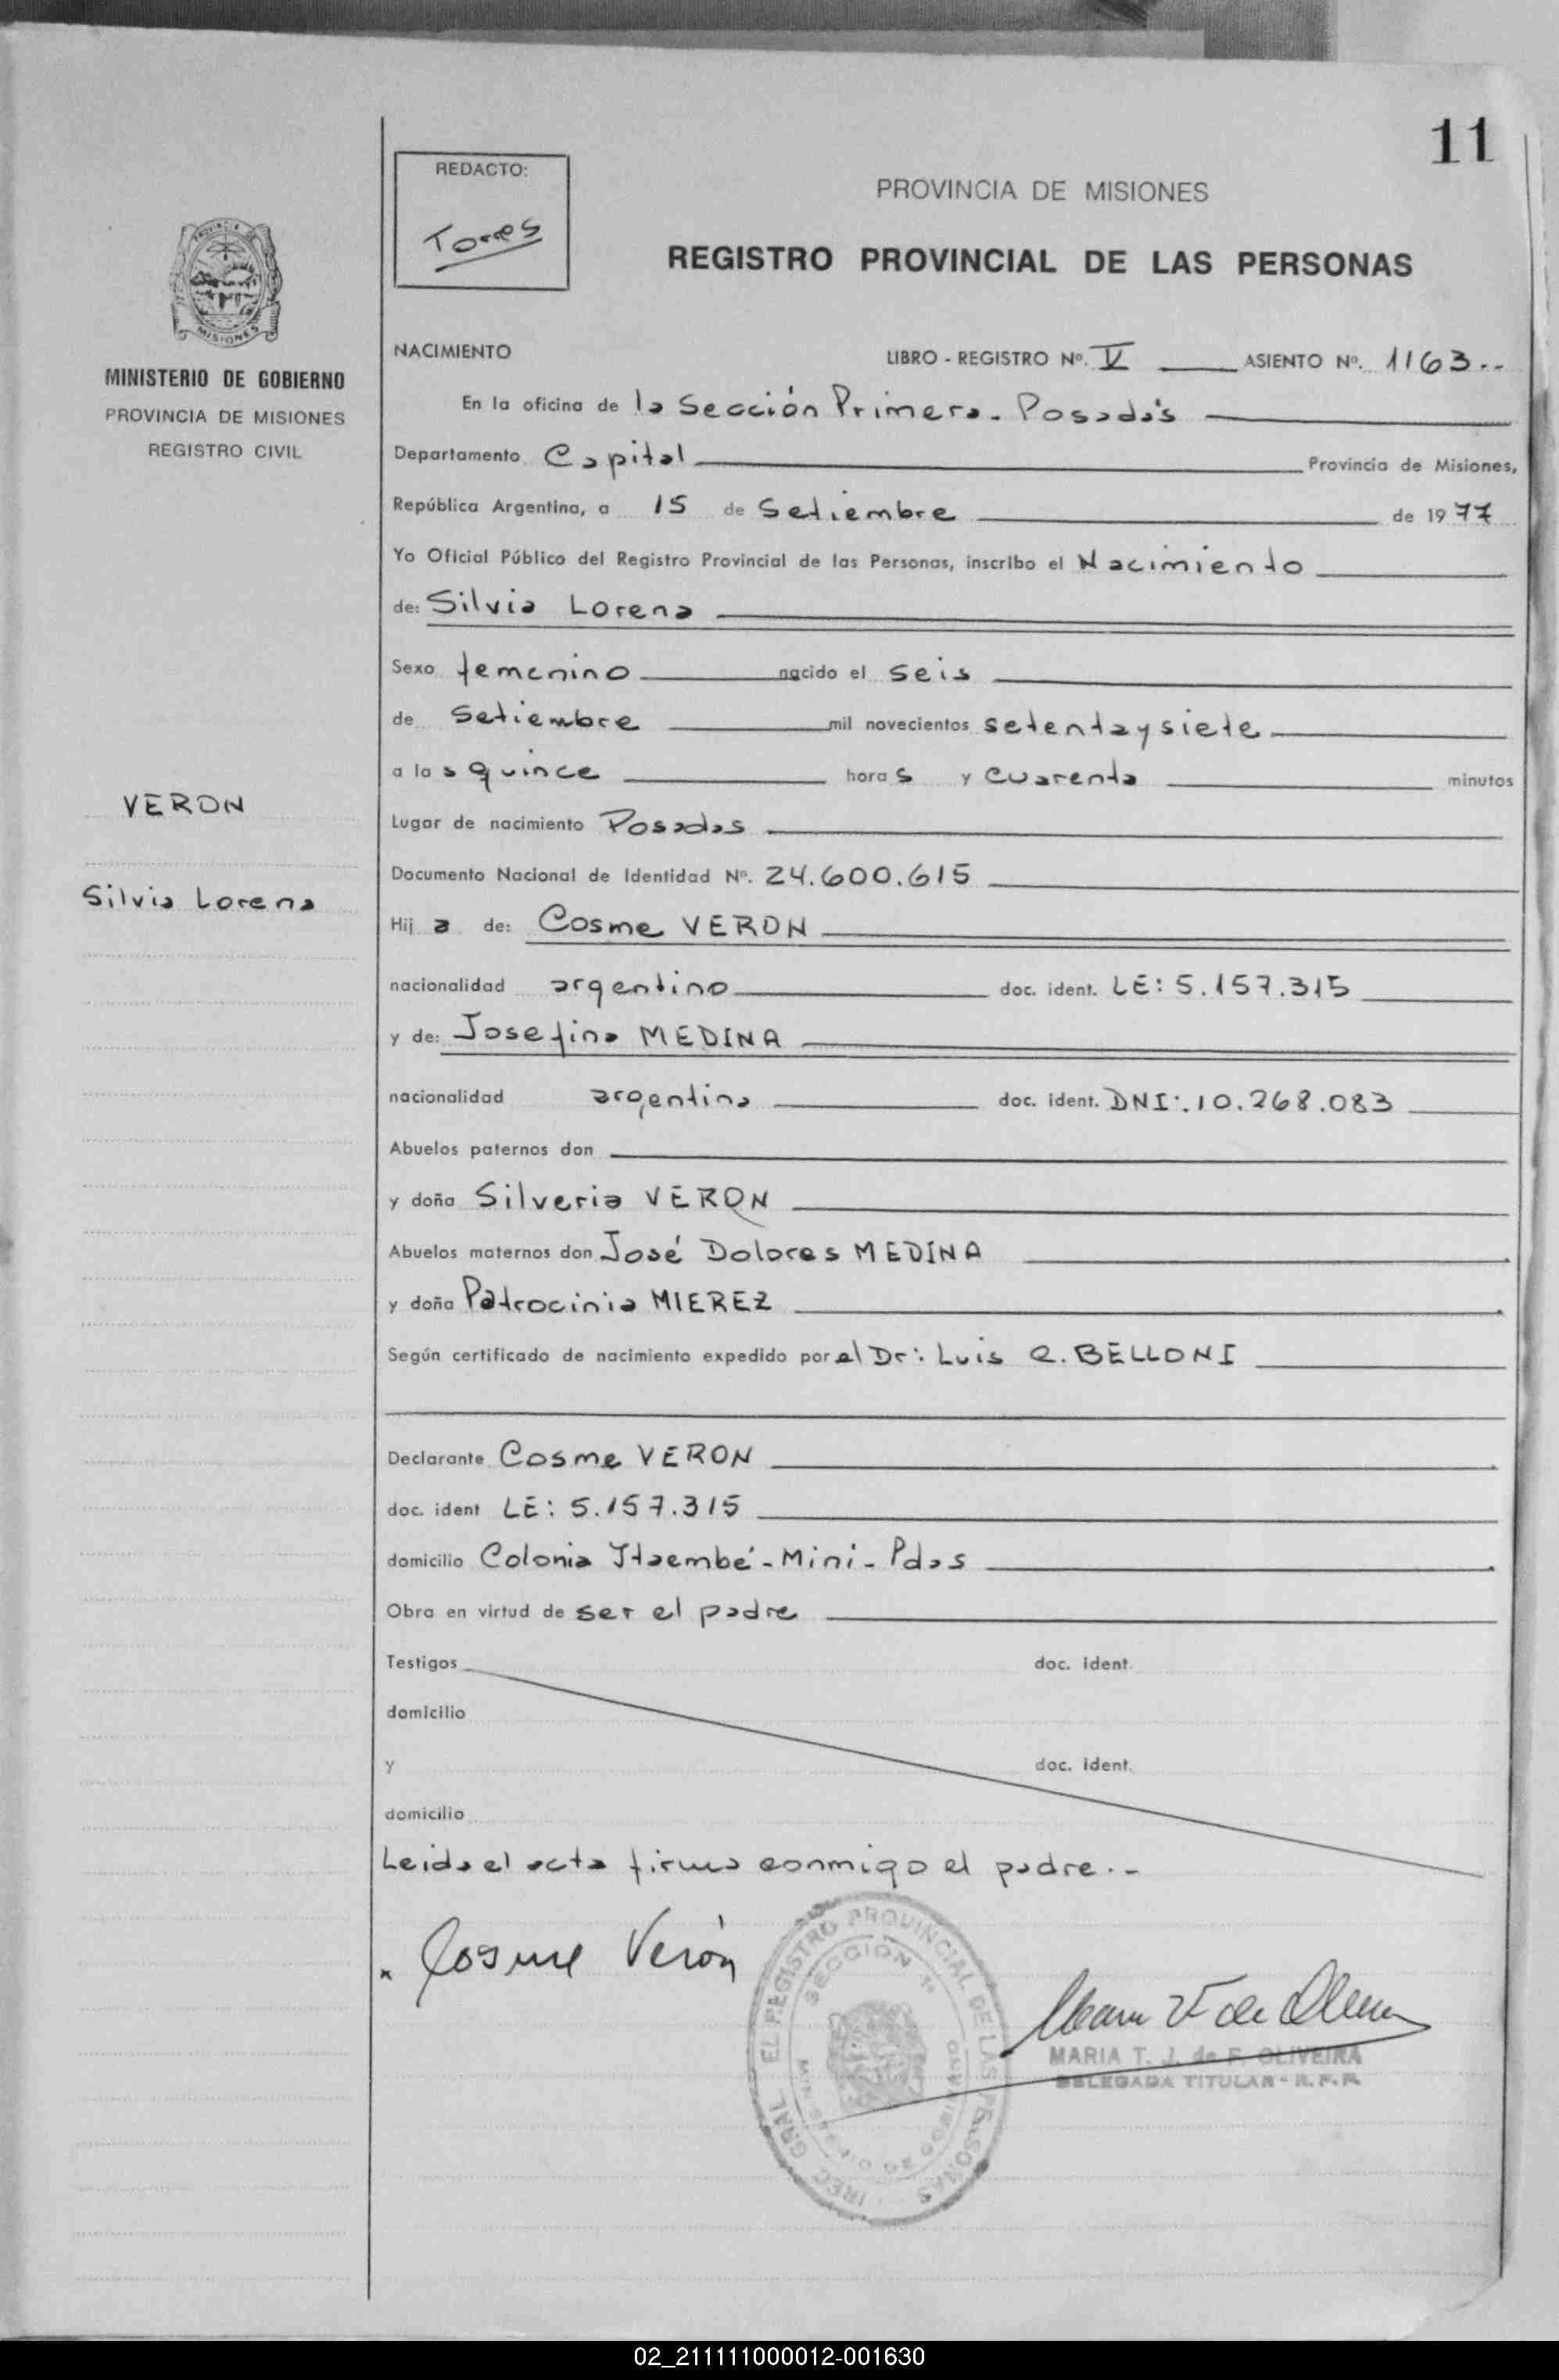 11
REDACTO:
Torres
PROVINCIA DE MISIONES
REGISTRO PROVINCIAL DE LAS PERSONAS
PROVINCIA DE
MISIONES
MINISTERIO DE GOBIERNO
PROVINCIA DE MISIONES
REGISTRO CIVIL
VERON
Silvia Lorena
NACIMIENTO LIBRO - REGISTRO Nº. V ASIENTO Nº. 1163..
En la oficina de la Sección Primera - Posadas
Departamento Capital Provincia de Misiones,
República Argentina, a 15 de Setiembre de 1977
Yo Oficial Público del Registro Provincial de las Personas, inscribo el Nacimiento
de: Silvia Lorena
Sexo femenino nacido el seis
de Setiembre mil novecientos setentaysiete
a las quince horas y cuarenta minutos
Lugar de nacimiento Posadas
Documento Nacional de Identidad Nº. 24.600.615
Hija de: Cosme VERON
nacionalidad argentino doc. ident. LE: 5.157.315
y de: Josefina MEDINA
nacionalidad argentina doc. ident. DNI:.10.268.083
Abuelos paternos don
y doña Silveria VERON
Abuelos maternos don José Dolores MEDINA
y doña Patrocinia MIEREZ
Según certificado de nacimiento expedido por el Dr: Luis BELLONI
Declarante Cosme VERON
doc. ident LE: 5.157.315
domicilio Colonia Itaembé-Mini-Pdas
Obra en virtud de ser el padre
Testigos doc. ident.
domicilio
y doc. ident.
domicilio
Leida el acta firma conmigo el padre.-
Cosme Verón
EL REGISTRO PROVINCIAL DE LAS PERSONAS
SECCION 1ª
DE GOBIERNO
MARIA T. J. de F. OLIVEIRA
DELEGADA TITULAR - R. P. P.
02_211111000012-001630